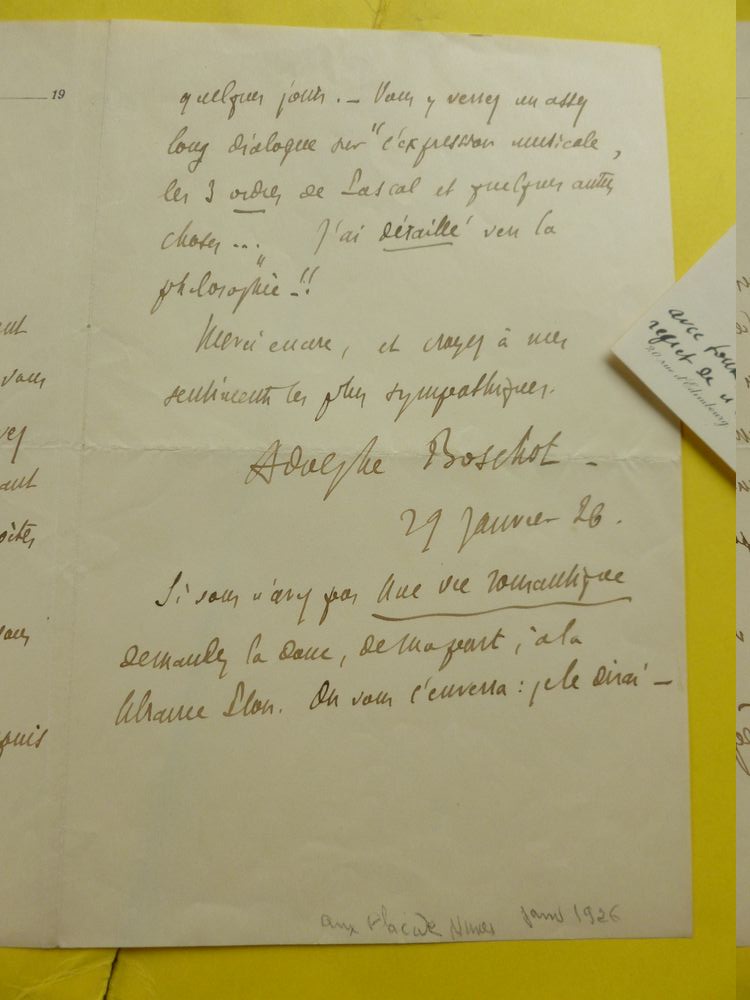 19
quelques jours. – Vous y verrez un assez
long dialogue sur "l'expression musicale,
les 3 ordres de Pascal et quelques autres
choses... " J'ai déraillé vers la
philosophie – !!
Merci encore, et croyez à mes
sentiments les plus sympathiques.
Adolphe Boschot –
29 janvier 26.
Si vous n'avez pas Une vie romantique
demandez la donc, de ma part, à la
librairie Plon. On vous l'enverra : je le dirai –
vous
vous
puis
avec tous
regret de
20 rue d'Edimbourg
aux janv 1926